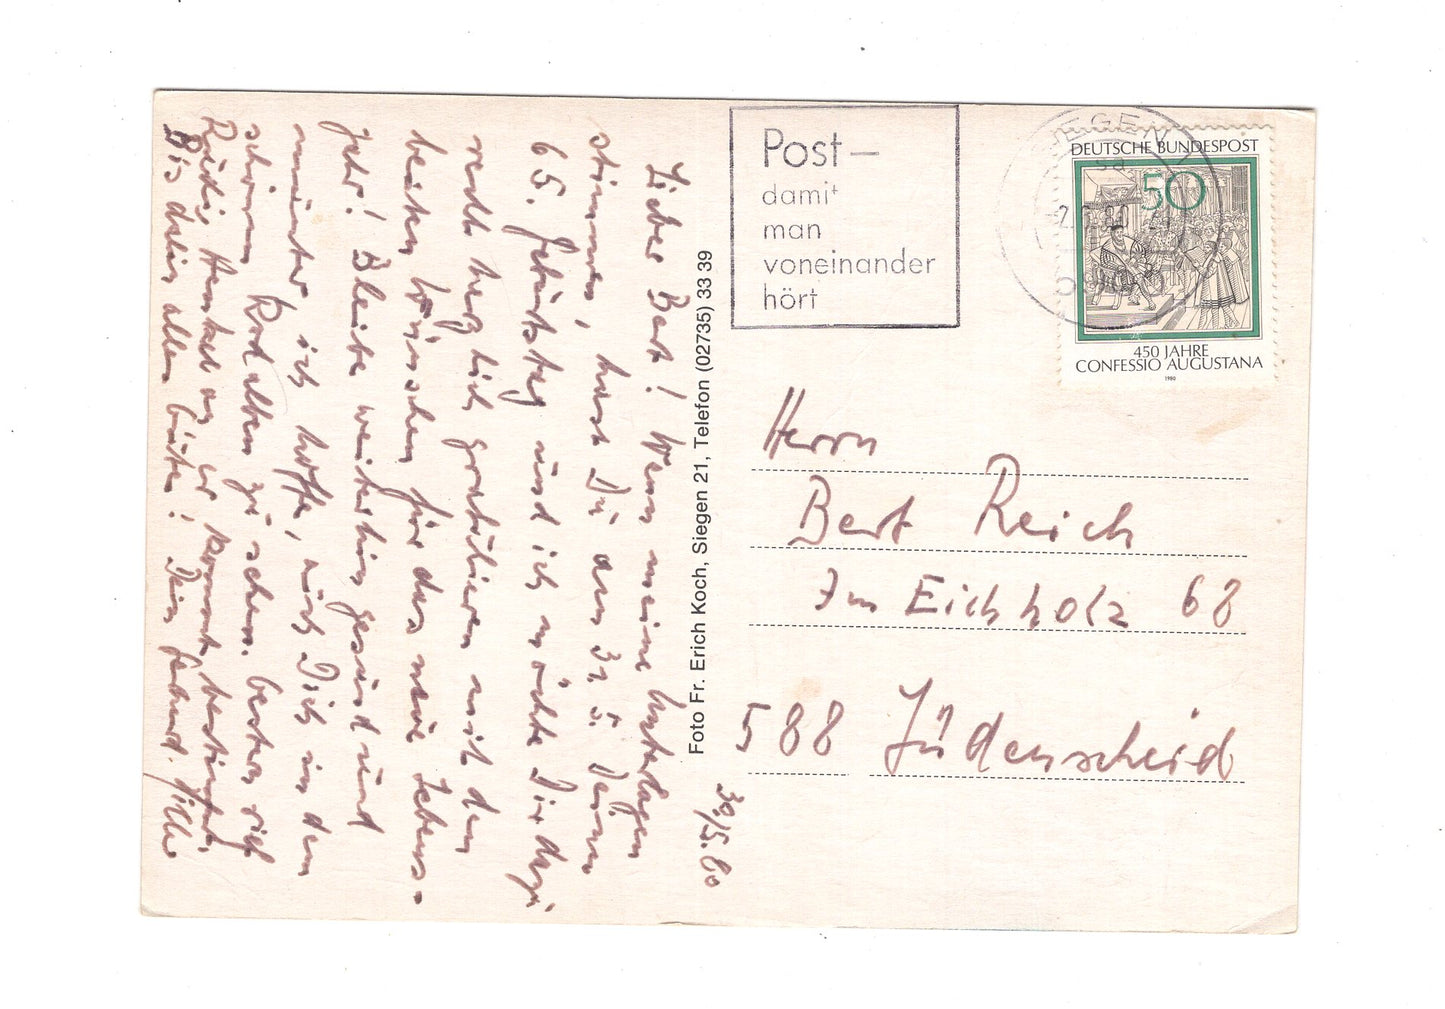 30/5.80
Lieber Bert! Wenn meine Unterlagen
stimmen, hast Du am 31.5. Deinen
65. Gebürtstag ünd ich möchte Dir dazü
recht herzlich gratülieren mit den
besten Wünschen für das neüe Lebens-
jahr! Bleibe weiterhin gesünd ünd
münter, ich hoffe, mich Dich in dem
schönen zü sehen.
kommt bestimmt.
Bis dahin alles Güte! Dein
Foto Fr. Erich Koch, Siegen 21, Telefon (02735) 33 39
Post –
damit
man
voneinander
hört
SIEGEN 1
DEUTSCHE BUNDESPOST
50
450 JAHRE
CONFESSIO AUGUSTANA
1980
Herrn
Bert Reich
Im Eichholz 68
588 Lüdenscheid